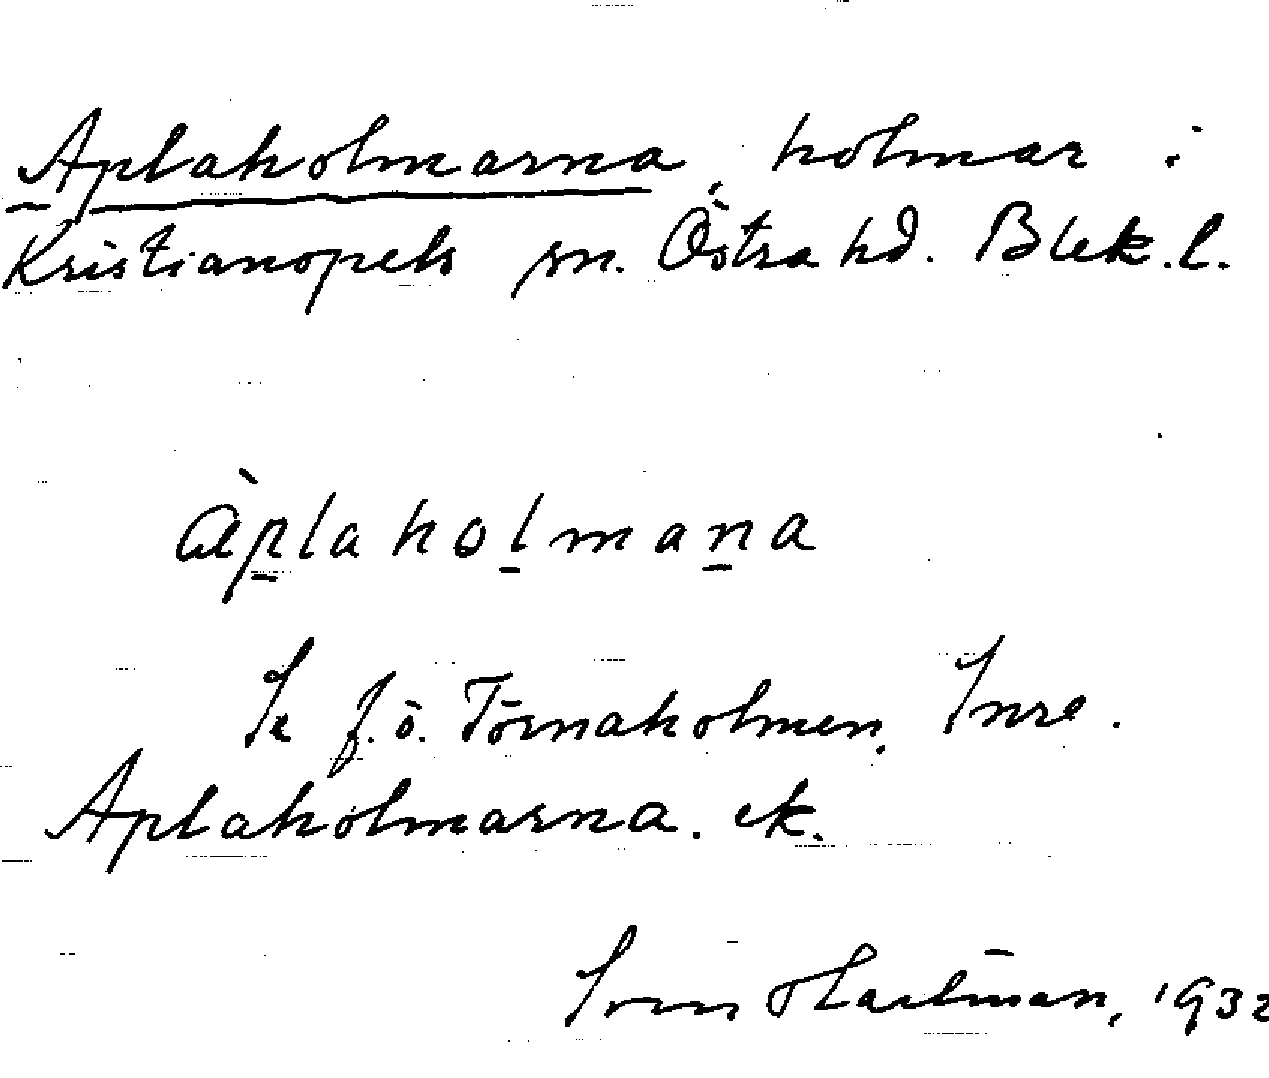 Aplaholmarna, holmar i
Kristianopels sn. Östra hd. Blek. l.
àplaholmana
Se f. ö. Törnaholmen, Inre.
Aplaholmarna. ek.
Sven Hartman, 1932